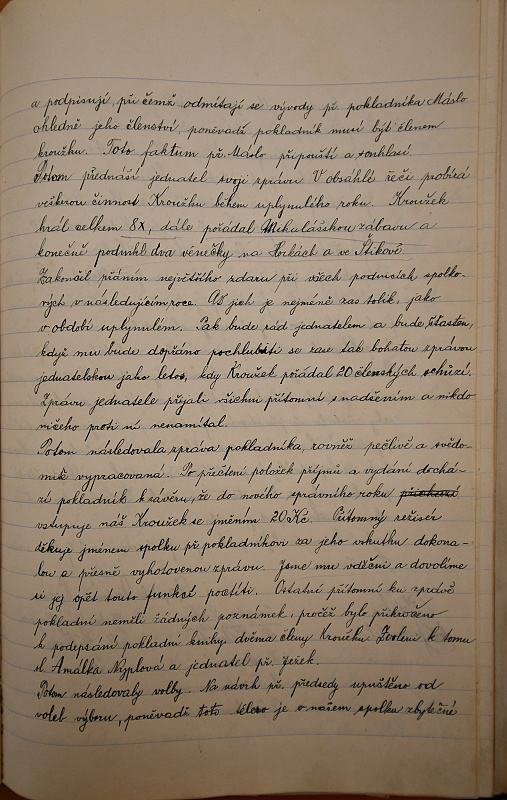 a podpisují, při čemž odmítají se vývody př. pokladníka Máslo
ohledně jeho členství, poněvadž pokladník musí být členem
kroužku. Toto faktum př. Máslo připouští a souhlasí.
Potom přednáší jednatel svoji zprávu. V obsáhlé řeči probírá
veškerou činnost Kroužku během uplynulého roku. Kroužek
hrál celkem 8x, dále pořádal Mikulášskou zábavu a
konečně podnikl dva věnečky na Horkách a ve Štikově.
Zakončil přáním největšího zdaru při všech podnicích spolko-
vých v následujícím roce. Ať jich je nejméně zas tolik, jako
v období uplynulém. Pak bude rád jednatelem a bude šťasten,
když mu bude dopřáno pochlubiti se zase tak bohatou zprávou
jednatelskou jako letos, kdy Kroužek pořádal 20 členských schůzí.
Zprávu jednatele přijali všichni přítomní s nadšením a nikdo
ničeho proti ní nenamítal.
Potom následovala zpráva pokladníka, rovněž pečlivě a svědo-
mitě vypracovaná. Po přečtení položek příjmů a vydání dochá-
zí pokladník k závěru, že do nového správního roku přichází
vstupuje náš Kroužek se jměním 20 Kč. Přítomný režisér
děkuje jménem spolku př. pokladníkovi za jeho vskutku dokona-
lou a přesně vyhotovenou zprávu. Jsme mu vděčni a dovolíme
si jej opět touto funkcí poctíti. Ostatní přítomní ku zprávě
pokladní neměli žádných poznámek, pročež bylo přikročeno
k podepsání pokladní knihy dvěma členy Kroužku. Zvoleni k tomu
sl. Amálka Nyplová a jednatel př. Ježek.
Potom následovaly volby. Na návrh př. předsedy upuštěno od
voleb výboru, poněvadž toto těleso je v našem spolku zbytečné